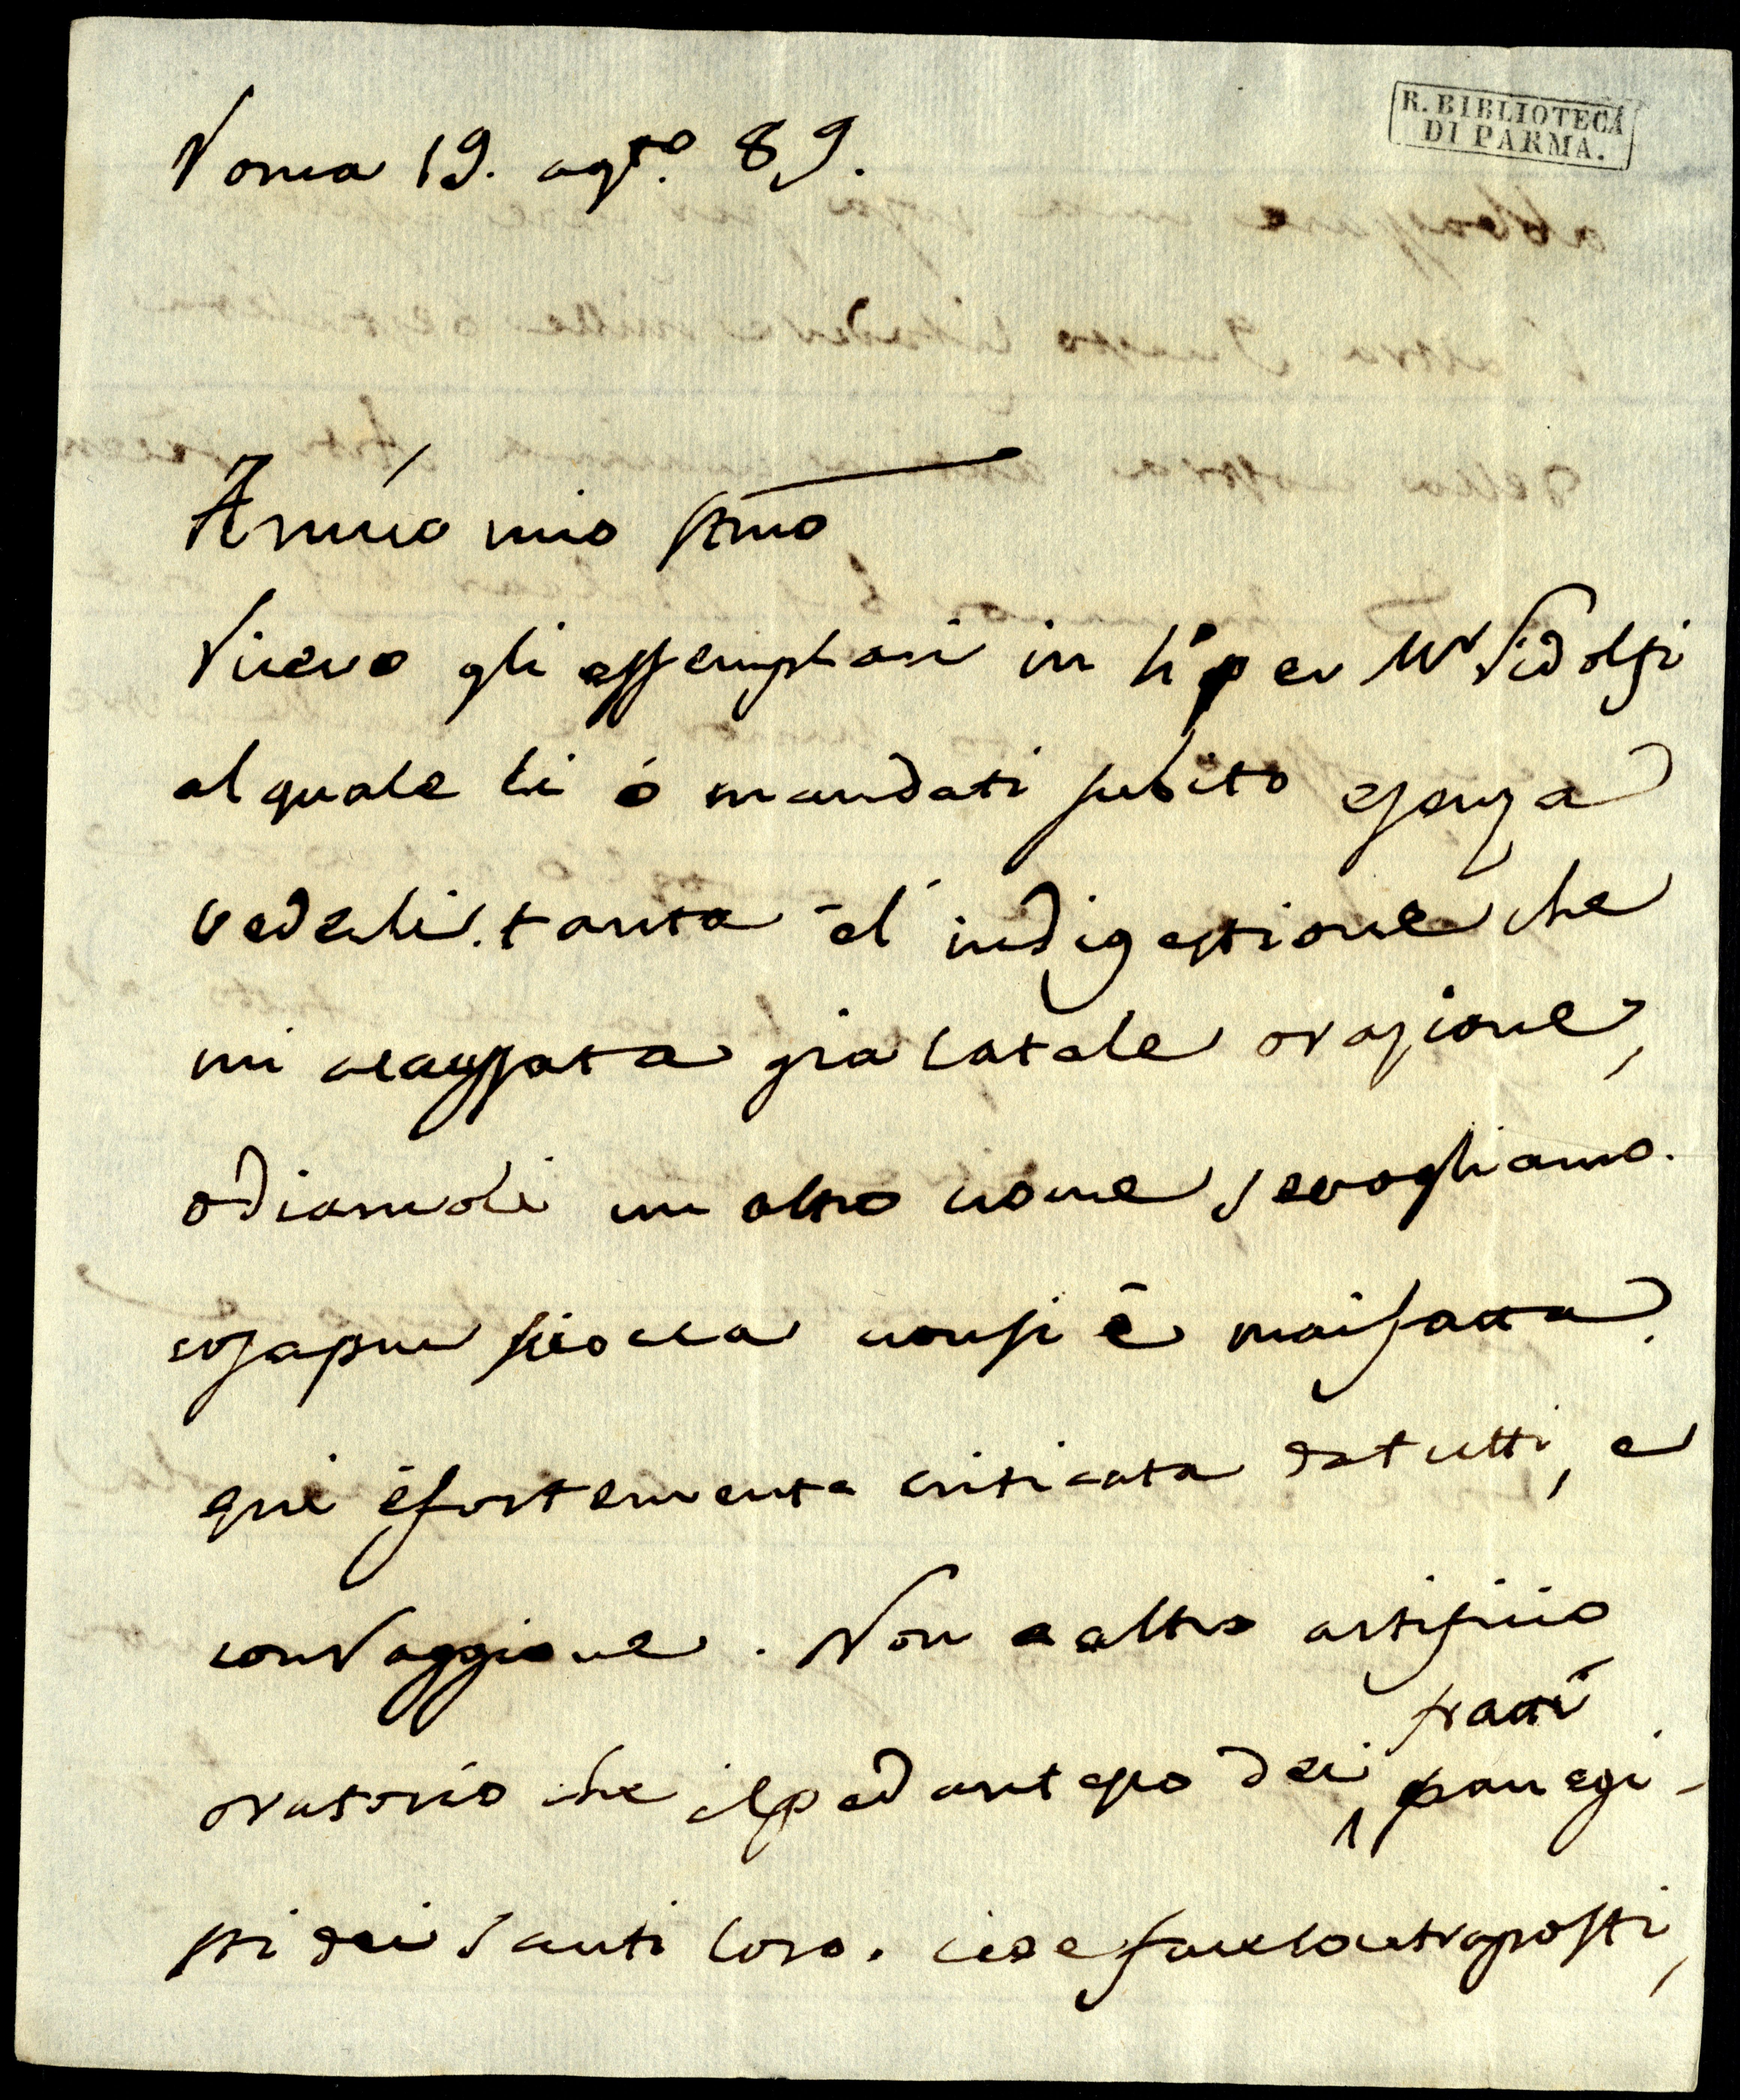 R. BIBLIOTECA
DI PARMA.
Roma 19. agto. 89.
Amico mio stmo
Ricevo gli essemplari in per Mr Ridolfi
al quale li ó mandati subito e senza
vederli. tanta é l'indigestione che
mi a caussata gia la tale orazione,
o diamoli un altro nome se vogliamo.
cosa piu sciocca non si è mai fatta.
qui é fortemente criticata da tutti, e
con raggione. Non a altro artificio
oratorio che il pedantesco dei frati panegi-
sti dei Santi loro. cioe fare contraposti,